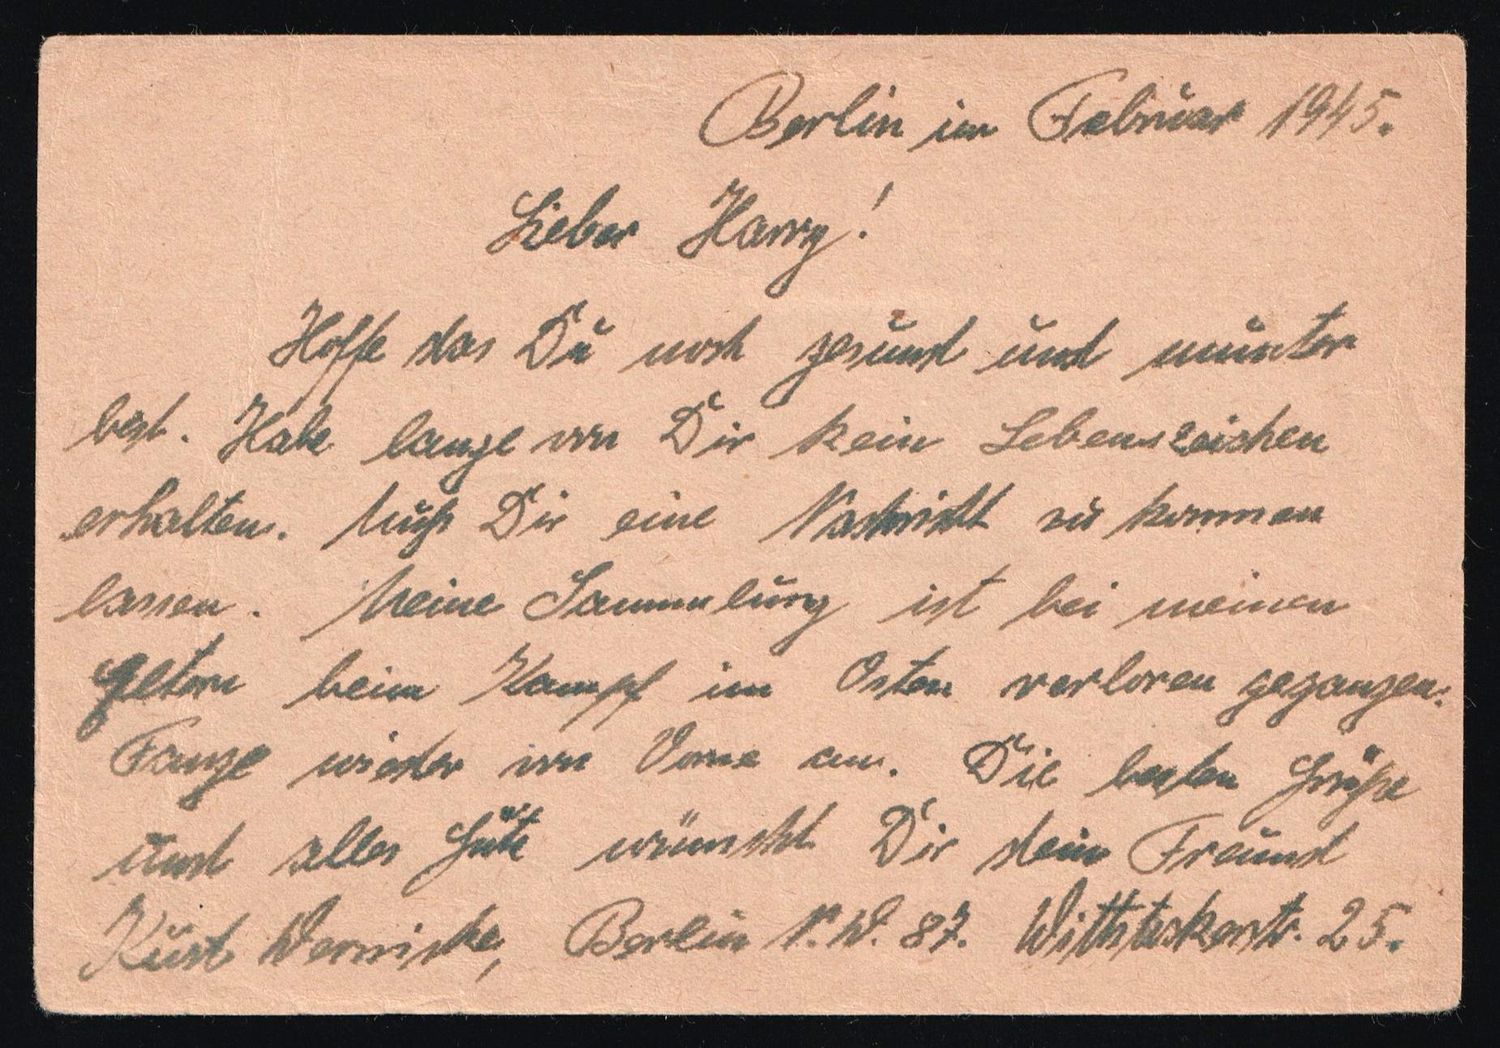 Berlin im Februar 1945.
Lieber Harry!
Hoffe das Du noch gesund und munter
bist. Habe lange von Dir kein Lebenszeichen
erhalten. Muß Dir eine Nachricht zu kommen
lassen. Meine Sammlung ist bei meinen
Eltern beim Kampf im Osten verloren gegangen.
Fange wieder von Vorne an. Die besten Grüße
und alles Gute wünscht Dir dein Freund
Kurt Wernicke, Berlin N.W. 87. Wittstockerstr. 25.